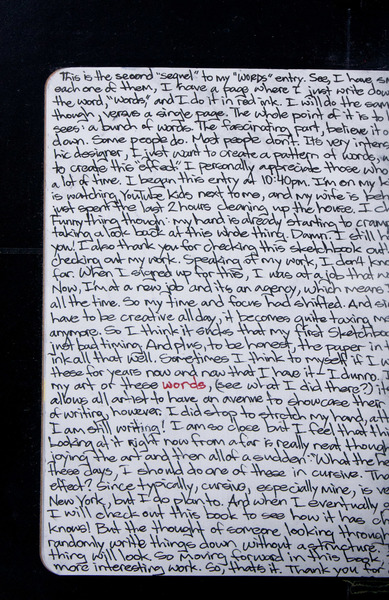 This is the second "sequel" to my "WORDS" entry. See, I have
each one of them, I have a page where I just write down
the word, "words," and I do it in red ink. I will do the same
though, versus a single page. The whole point of it is to
sees: a bunch of words. The fascinating part, believe it
down. Some people do. Most people don't. Its very
hic designer, I just want to create a pattern of words,
to create this "effect." I personally appreciate those who
a lot of time. I began this entry at 10:40pm. I'm on my
is watching YouTube kids next to me, and my wife is
just spent the last 2 hours cleaning up the house. I
Funny thing though: my hand is already starting to cramp
taking a look back at this whole thing. Damn. I still
you! I also thank you for checking this sketchbook out
checking out my work. Speaking of my work, I don't
far. When I signed up for this, I was at a job that
Now, I'm at a new job and its an agency, which means
all the time. So my time and focus had shifted. And
have to be creative all day, it becomes quite taxing
anymore. So I think it sucks that my first Sketchbook
just bad timing. And plus, to be honest, the paper in
ink all that well. Sometimes I think to myself if I
these for years now and now that I have it - I dunno.
my art or these words, (see what I did there?)
allows all artist to have an avenue to showcase their
of writing, however. I did stop to stretch my hand,
I am still writing! I am so close but I feel that
Looking at it right now from a far is really neat though
joying the art and then all of a sudden: "What the
These days, I should do one of these in cursive.
effect? Since typically, cursive, especially mine, is
New York, but I do plan to. And when I eventually
I will check out this book to see how it has
knows! But the thought of someone looking through
randomly write things down without a structure.
thing will look. So moving forward in this book
more interesting work. So, thats it. Thank you for